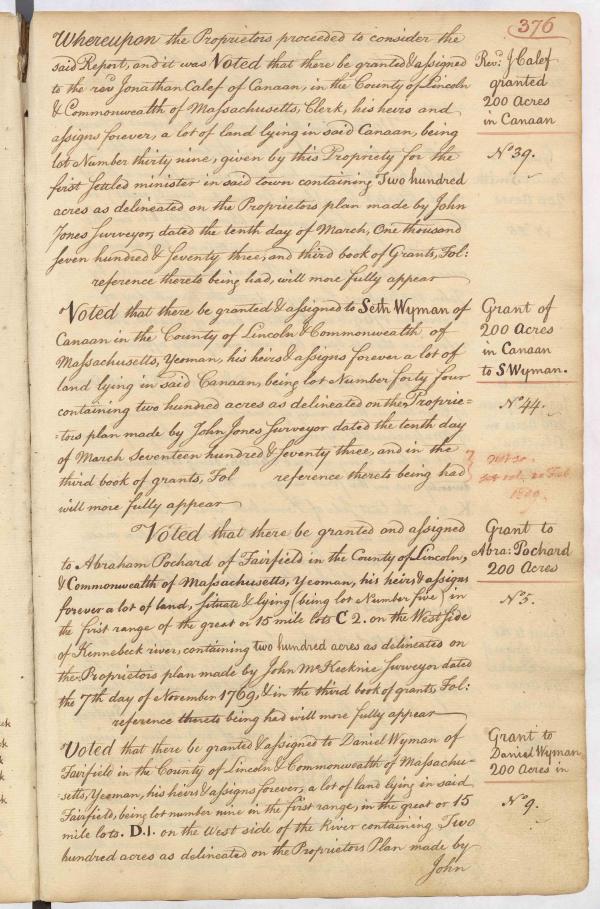 376
Whereupon the Proprietors proceeded to consider the
said Report, and it was Voted that there be granted & assigned
to the revd Jonathan Calef of Canaan, in the County of Lincoln
& Commonwealth of Massachusetts, Clerk, his heirs and
assigns forever, a lot of land lying in said Canaan, being
lot Number thirty nine, given by this Propriety for the
first settled minister in said town containing Two hundred
acres as delineated on the Proprietors plan made by John
Jones Surveyor, dated the tenth day of March, One thousand
seven hundred & seventy three, and third book of Grants, Fol:
reference thereto being had, will more fully appear
Revd. J Calef
granted
200 Acres
in Canaan
No 39.
Voted that there be granted & assigned to Seth Wyman of
Canaan in the County of Lincoln & Commonwealth of
Massachusetts, Yeoman, his heirs & assigns forever a lot of
land lying in said Canaan, being lot Number forty four
containing two hundred acres as delineated on the Proprie=
=tors plan made by John Jones Surveyor dated the tenth day
of March Seventeen hundred & seventy three, and in the
third book of grants, Fol reference thereto being had
will more fully appear
Grant of
200 Acres
in Canaan
to S Wyman.
No 44.
Voted that there be granted and assigned
to Abraham Pochard of Fairfield in the County of Lincoln,
& Commonwealth of Massachusetts, Yeoman, his heirs & assigns
forever a lot of land, situate & lying (being lot Number five) in
the first range of the great or 15 mile lots C 2. on the West side
of Kennebeck river, containing two hundred acres as delineated on
the Proprietors plan made by John McKecknie Surveyor dated
the 7th day of November 1769, & in the third book of grants, Fol:
reference thereto being had will more fully appear
Grant to
Abra: Pochard
200 Acres
No 5.
Voted that there be granted & assigned to Daniel Wyman of
Fairfield in the County of Lincoln & Commonwealth of Massachu=
=setts, Yeoman, his heirs & assigns forever, a lot of land lying in said
Fairfield, being lot number nine in the first range, in the great or 15
mile lots. D.1. on the West side of the River containing Two
hundred acres as delineated on the Proprietors Plan made by
John
Grant to
Daniel Wyman
200 Acres in
No 9.